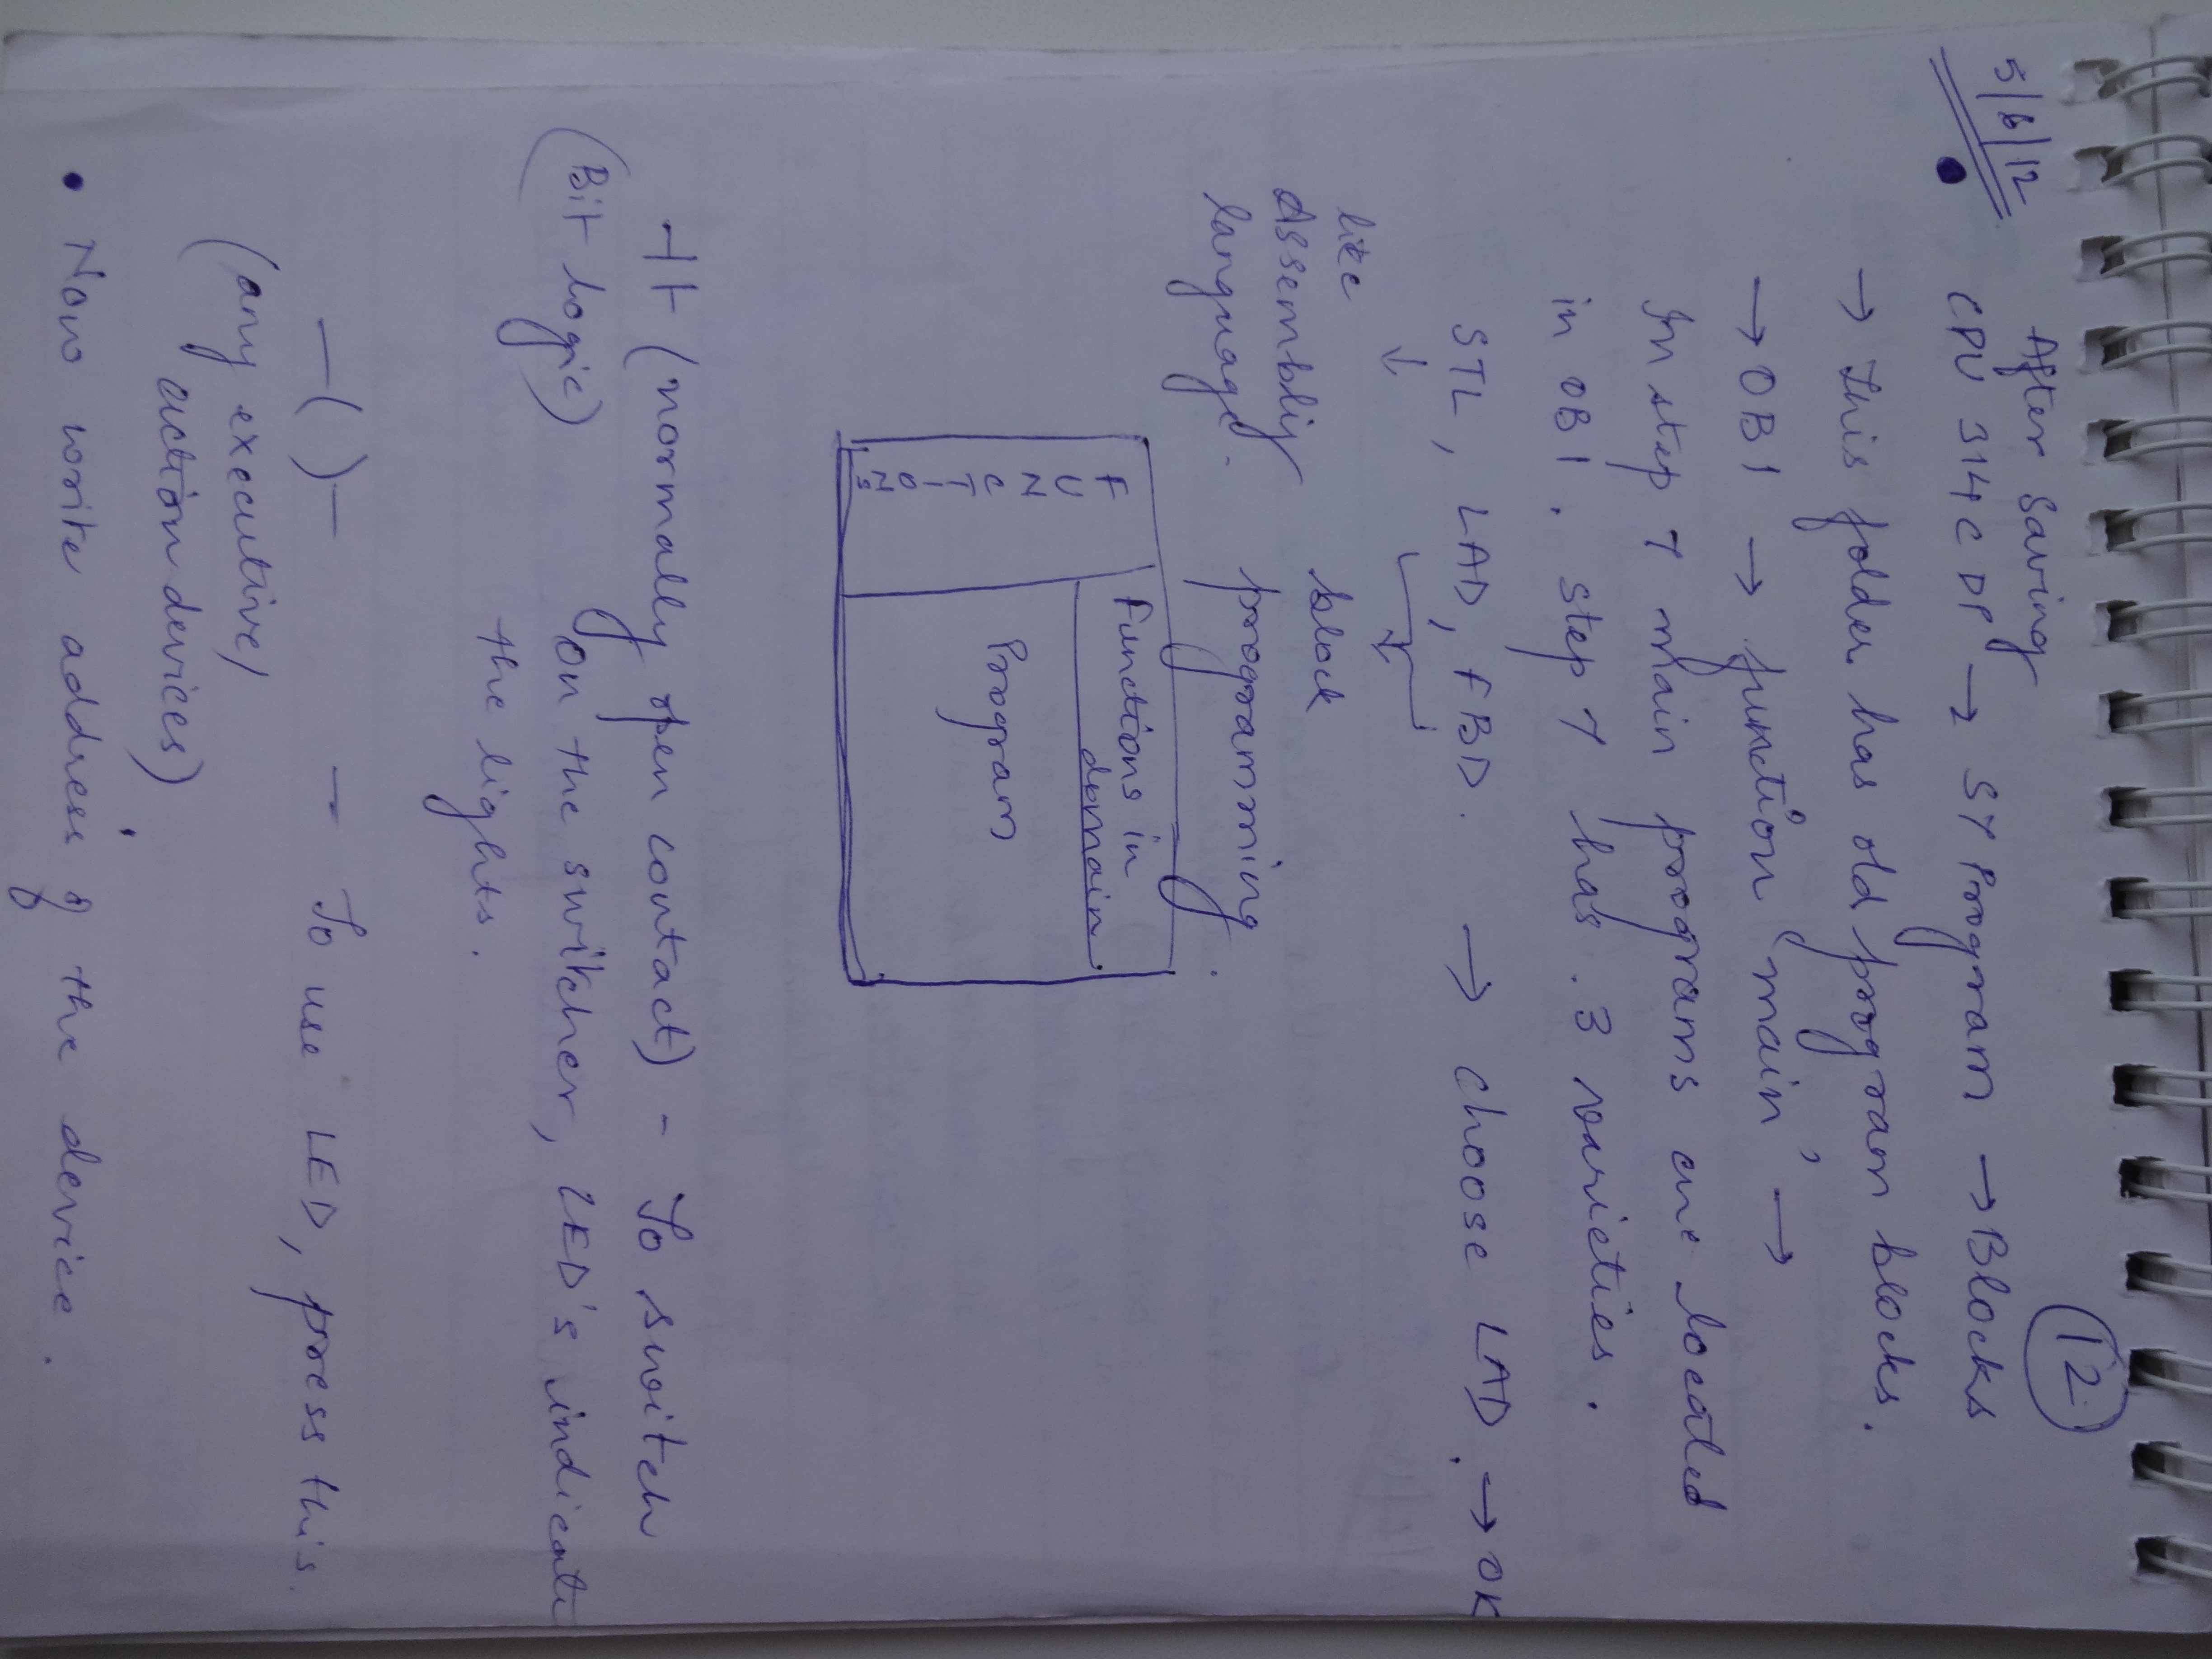 5/6/12
12
After saving
• CPU 314C DP → S7 Program → Blocks
→ This folder has old program blocks.
→ OB1 → function 'main' →
In step 7 main programs are located
in OB1. Step 7 has 3 varieties.
STL, LAD, FBD. → choose LAD. → OK
like
Assembly
language.
block
programming.
FUNCTIONS
Functions in
domain.
Program
⊣⊢ (normally open contact) - To switch
(Bit logic) on the switcher, LED's indicate
the lights.
—( )— - To use LED, press this.
(any executive/
action devices)
• Now write address of the device.